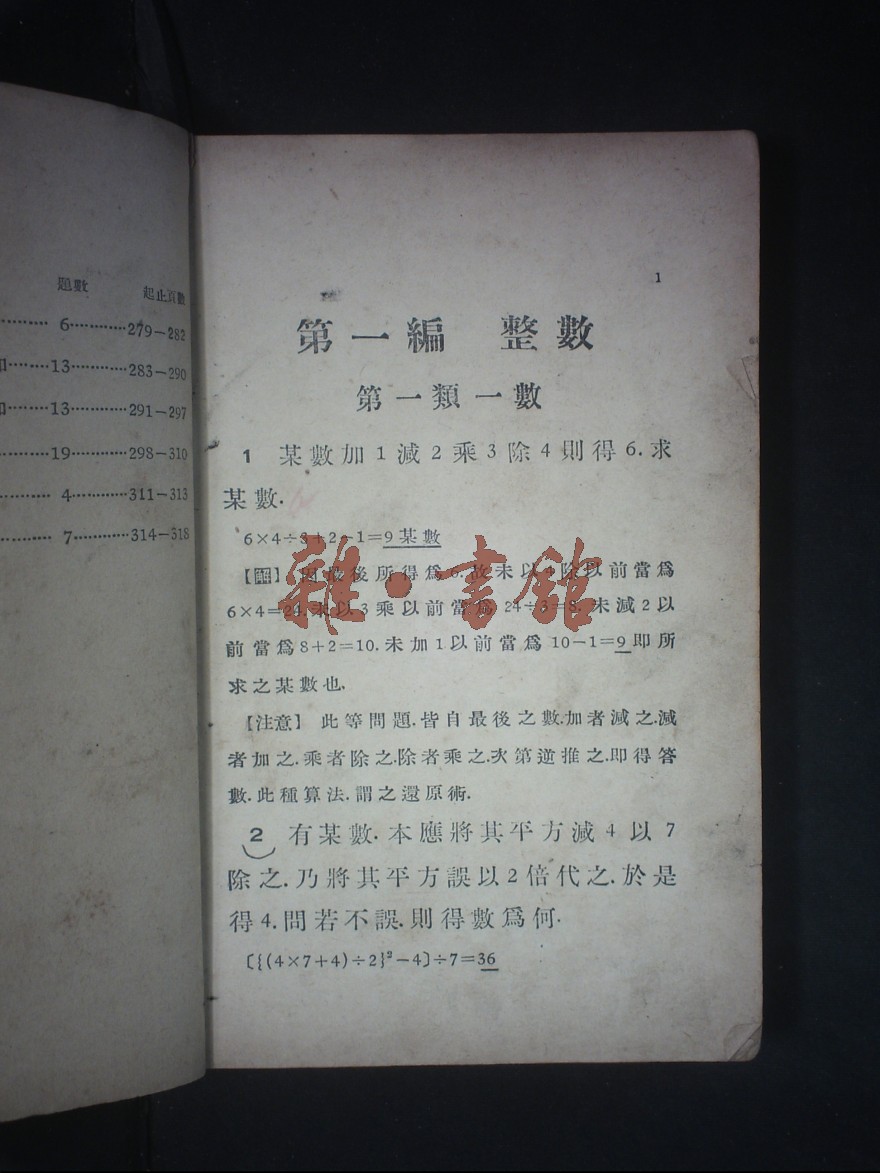 題數 起止頁數
6 279-282
13 283-290
13 291-297
19 298-310
4 311-313
7 314-318
1
第一編 整數
第一類一數
1 某數加1減2乘3除4則得6.求
某數.
6×4÷3+2-1=9某數
【解】因最後所得爲6.故未以4除以前當爲
6×4=24.未以3乘以前當爲24÷3=8.未減2以
前當爲8+2=10.未加1以前當爲10-1=9即所
求之某數也.
【注意】此等問題.皆自最後之數.加者減之.減
者加之.乘者除之.除者乘之.次第逆推之.即得答
數.此種算法.謂之還原術.
2 有某數.本應將其平方減4以7
除之.乃將其平方誤以2倍代之.於是
得4.問若不誤.則得數爲何.
〔{(4×7+4)÷2}²-4〕÷7=36
雜·書館